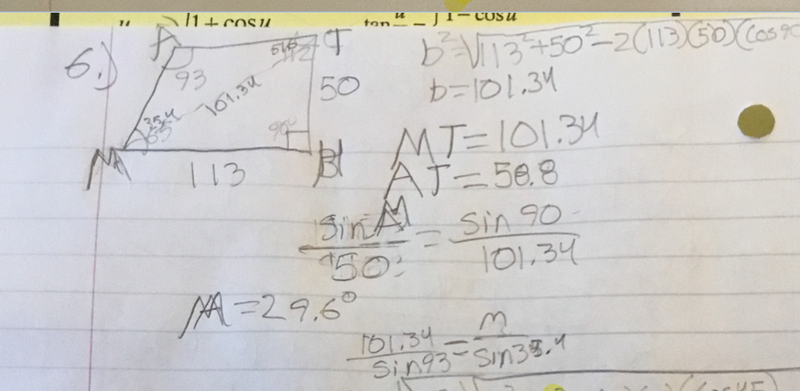 u 1 + cos u tan u 1 - cos u
6.) A T
93 112
101.34 50
35.4
65 90
M H
113
b² = √113² + 50² - 2(113)(50)(cos 90
b = 101.34
MT = 101.34
AT = 58.8
sin M / 50 = sin 90 / 101.34
M = 29.6°
101.34 / sin 93 = m / sin 35.4
(cos 45